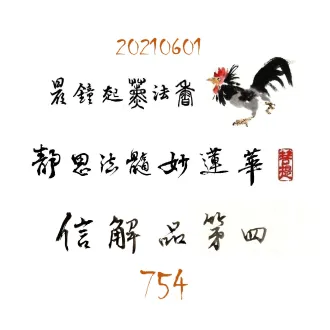 20210601
晨鐘起薰法香
靜思法髓妙蓮華
信解品第四
754